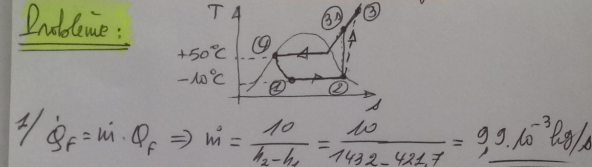 Problème :
T
+50°C
-10°C
④
③s
③
①
②
s
1/ Q̇_F = ṁ · Q_F ⇒ ṁ = 10 / (h₂ - h₁) = 10 / (1432 - 421,7) = 9,9·10⁻³ kg/s